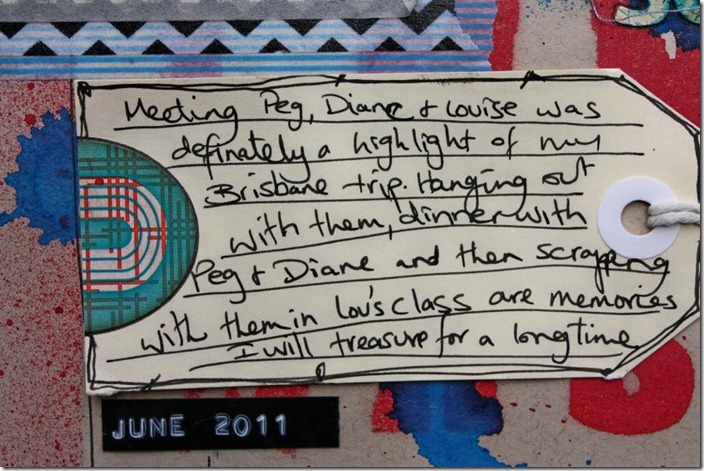 Meeting Peg, Diane & Louise was
definately a highlight of my
Brisbane trip. Hanging out
with them, dinner with
Peg & Diane and then scrapping
with them in Lou's class are memories
I will treasure for a long time
JUNE 2011